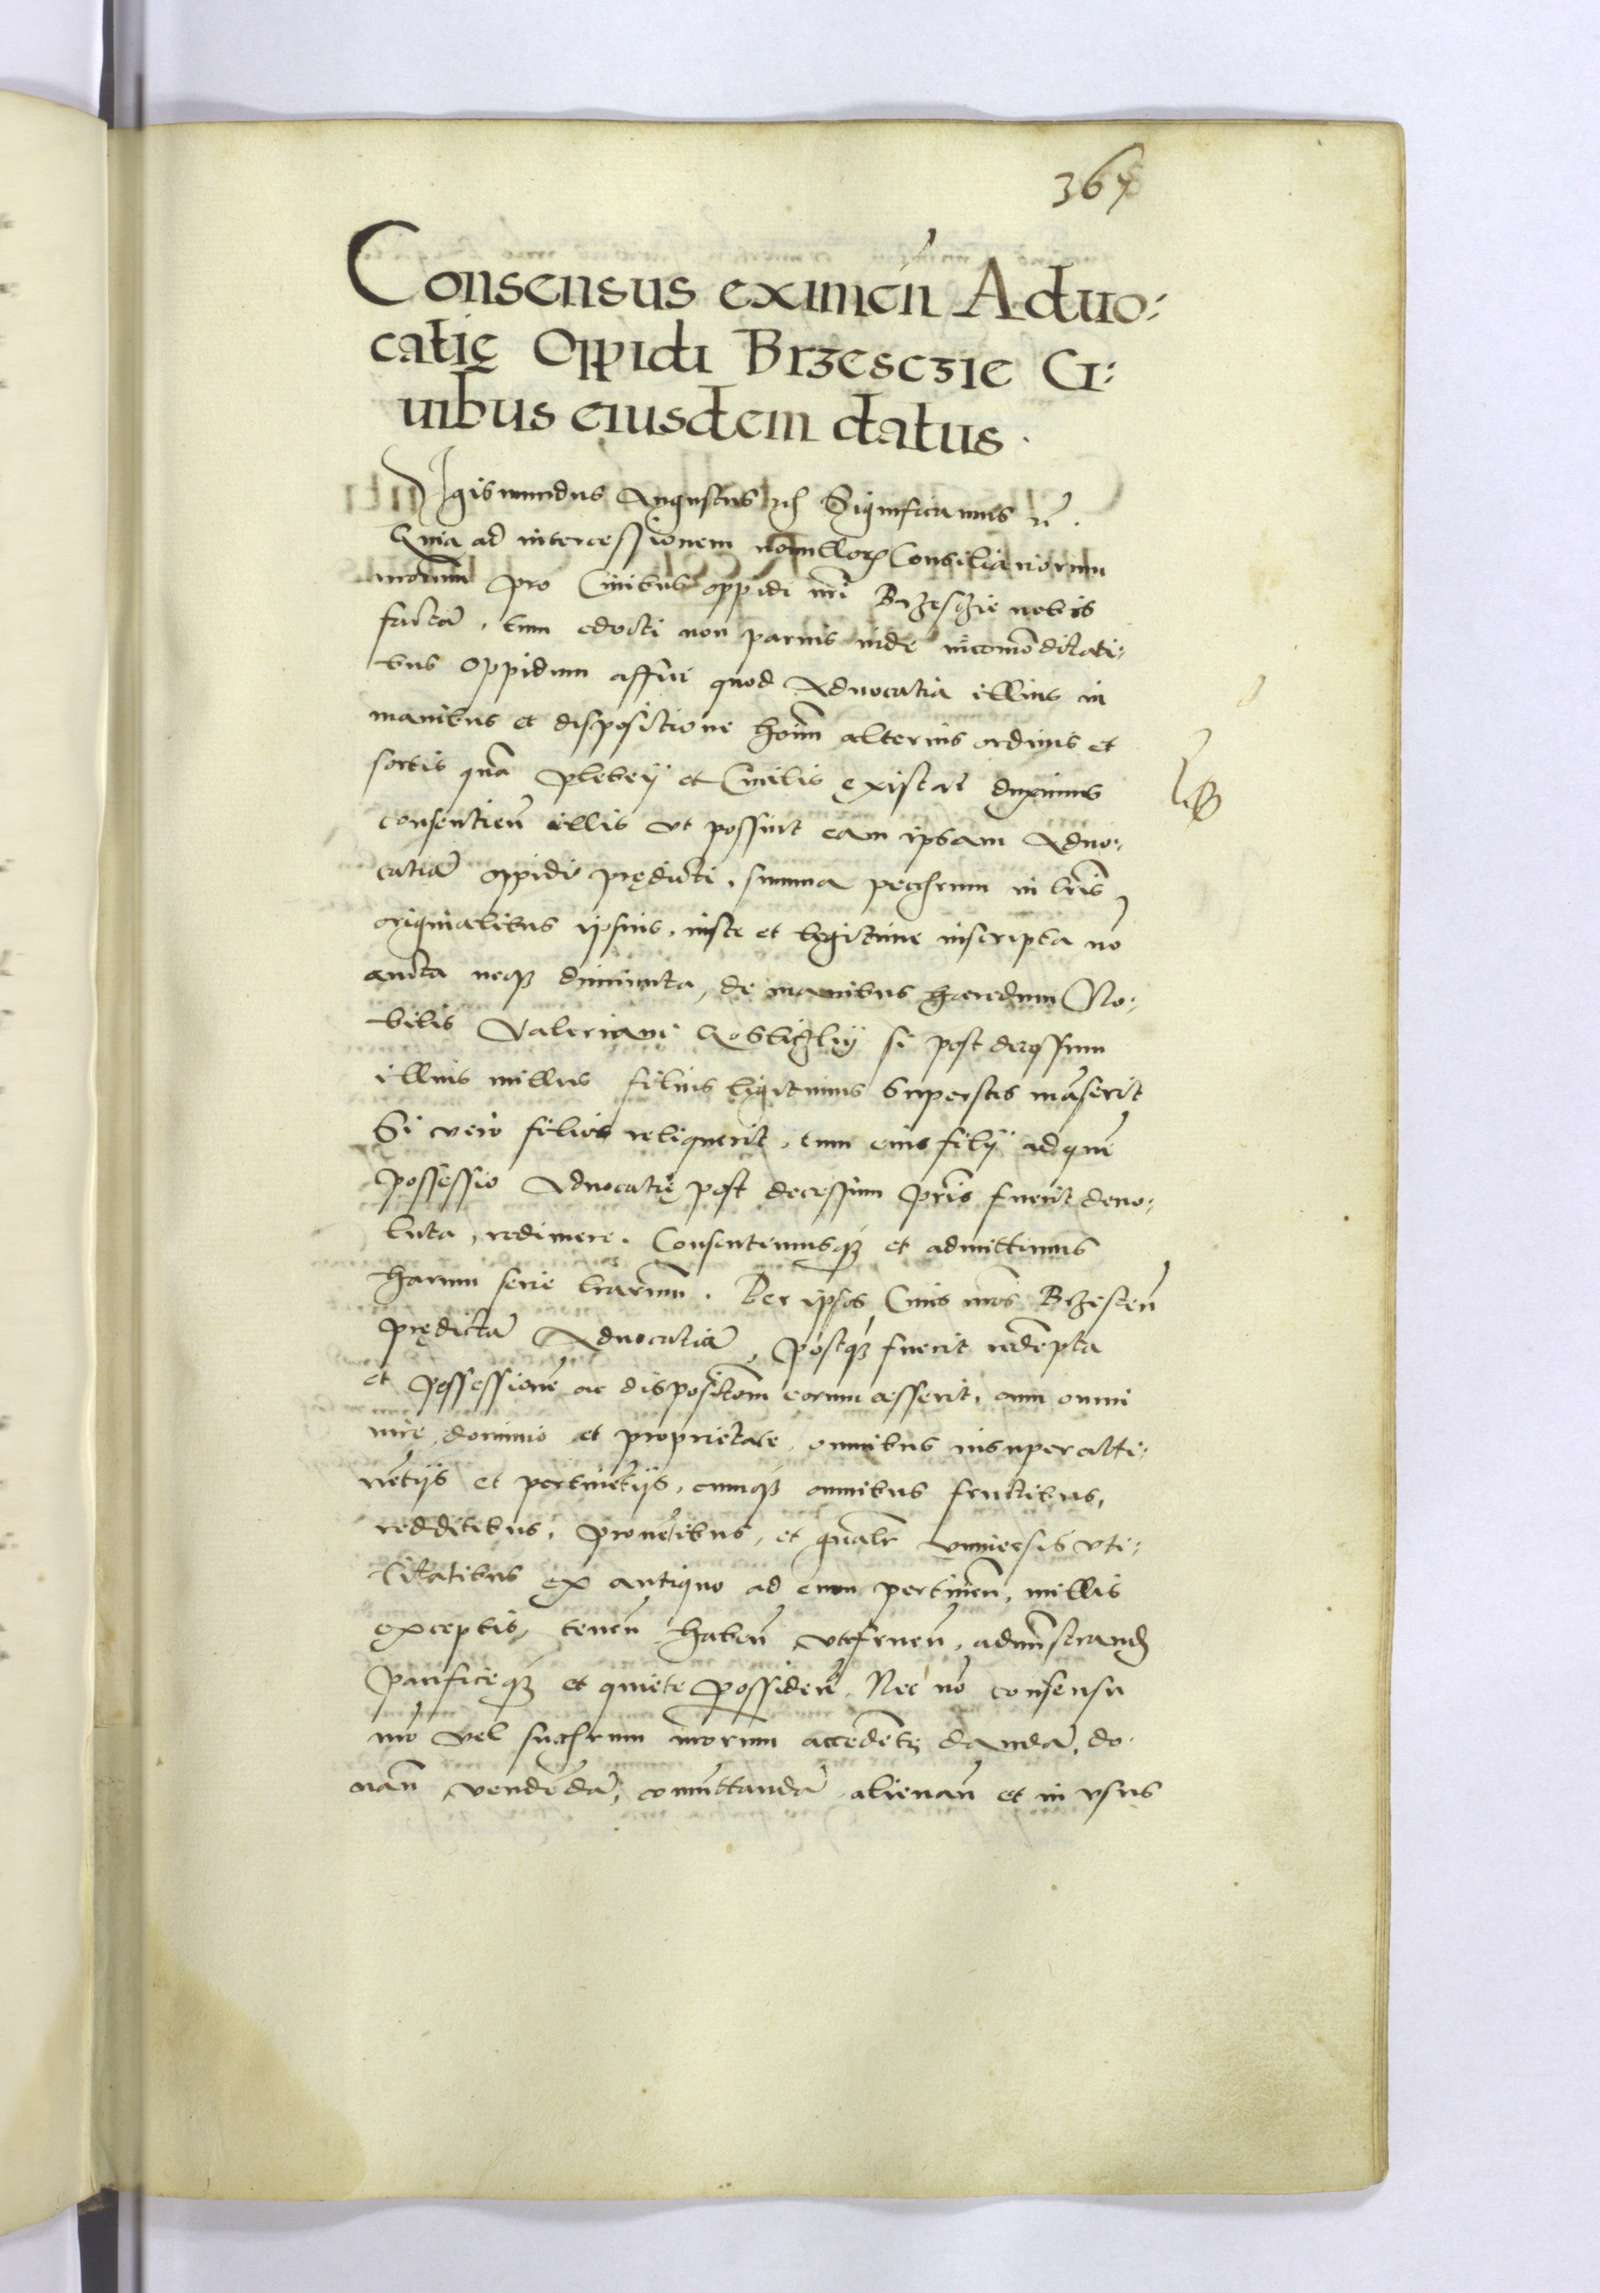 367
Consensus eximen̄ Aduo:
catię Oppidi Brzesczie Ci:
uibus eiusdem datus.
Sigismundus Augustus Significamus
Quia ad intercessionem nonullor Consiliariorum
nr̄orum pro Ciuibus oppidi nr̄i Brzesczie nobis
factā, tum edocti non paruis inde incomōditati:
bus oppidum affici quod Aduocatia illius in
manibus et dispositione hoīm alterius ordinis et
sortis quā plebeij et Ciuilis existat duximus
consentien̄ illis vt possint eam ipsam Aduo:
catiā oppidi prędicti, summa pecchrum in lr̄is
originalibus ipsius, iuste et legitime inscripta nō
aucta neqȝ diminuta, de manibus haeredum No:
bilis Valeriani si post decessum
illius nullus filius legitimus superstes māserit
Si vero filios reliquerit, tum eius filij ad quē
possessio Aduocatię post decessum pr̄is fuerit deuo:
luta, redimere. Consentimusqȝ et admittimus
harum serie lr̄arum. Per ipsos Ciues nr̄os Brzesten̄
prędictā Aduocatiā, postqȝ fuerit redēpta
et possessionē ac dispositōm eorum cesserit, cum omni
iure, dominio et proprietate, omnibus insuper atti:
nētijs et pertinētijs, cumqȝ omnibus fructibus,
redditibus, prouētibus, et gn̄alr vniuersis vti:
litatibus ex antiquo ad eum pertinen̄, nullis
exceptis, tenen̄ haben̄ vtifruen̄, administrand
pacificeqȝ et quiete possiden̄. Nec nō consensu
nr̄o vel succhrum nr̄orum accedēte dandā, do:
nan̄ vendēdā, comuttandā alienan̄ et in vsus